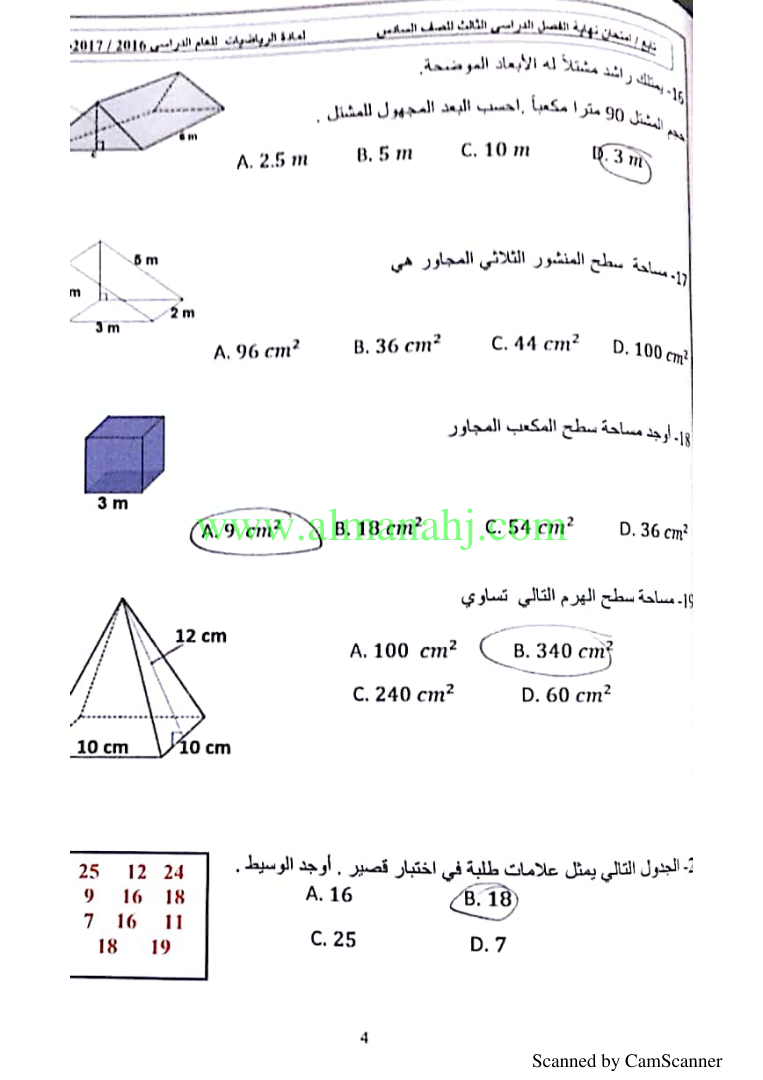 تابع / امتحان نهاية الفصل الدراسي الثالث للصف السادس لمادة الرياضيات للعام الدراسي 2016 / 2017
16- يمتلك راشد مشتلاً له الأبعاد الموضحة.
حجم المشتل 90 مترا مكعباً .احسب البعد المجهول للمشتل .
6 m
A. 2.5 m B. 5 m C. 10 m D. 3 m
17- مساحة سطح المنشور الثلاثي المجاور هي
5 m
m
2 m
3 m
A. 96 cm² B. 36 cm² C. 44 cm² D. 100 cm²
18- أوجد مساحة سطح المكعب المجاور
3 m
www.almanahj.com
A. 9 cm² B. 18 cm² C. 54 cm² D. 36 cm²
19- مساحة سطح الهرم التالي تساوي
12 cm
10 cm 10 cm
A. 100 cm² B. 340 cm²
C. 240 cm² D. 60 cm²
2- الجدول التالي يمثل علامات طلبة في اختبار قصير . أوجد الوسيط .
25 12 24
9 16 18
7 16 11
18 19
A. 16 B. 18
C. 25 D. 7
4
Scanned by CamScanner